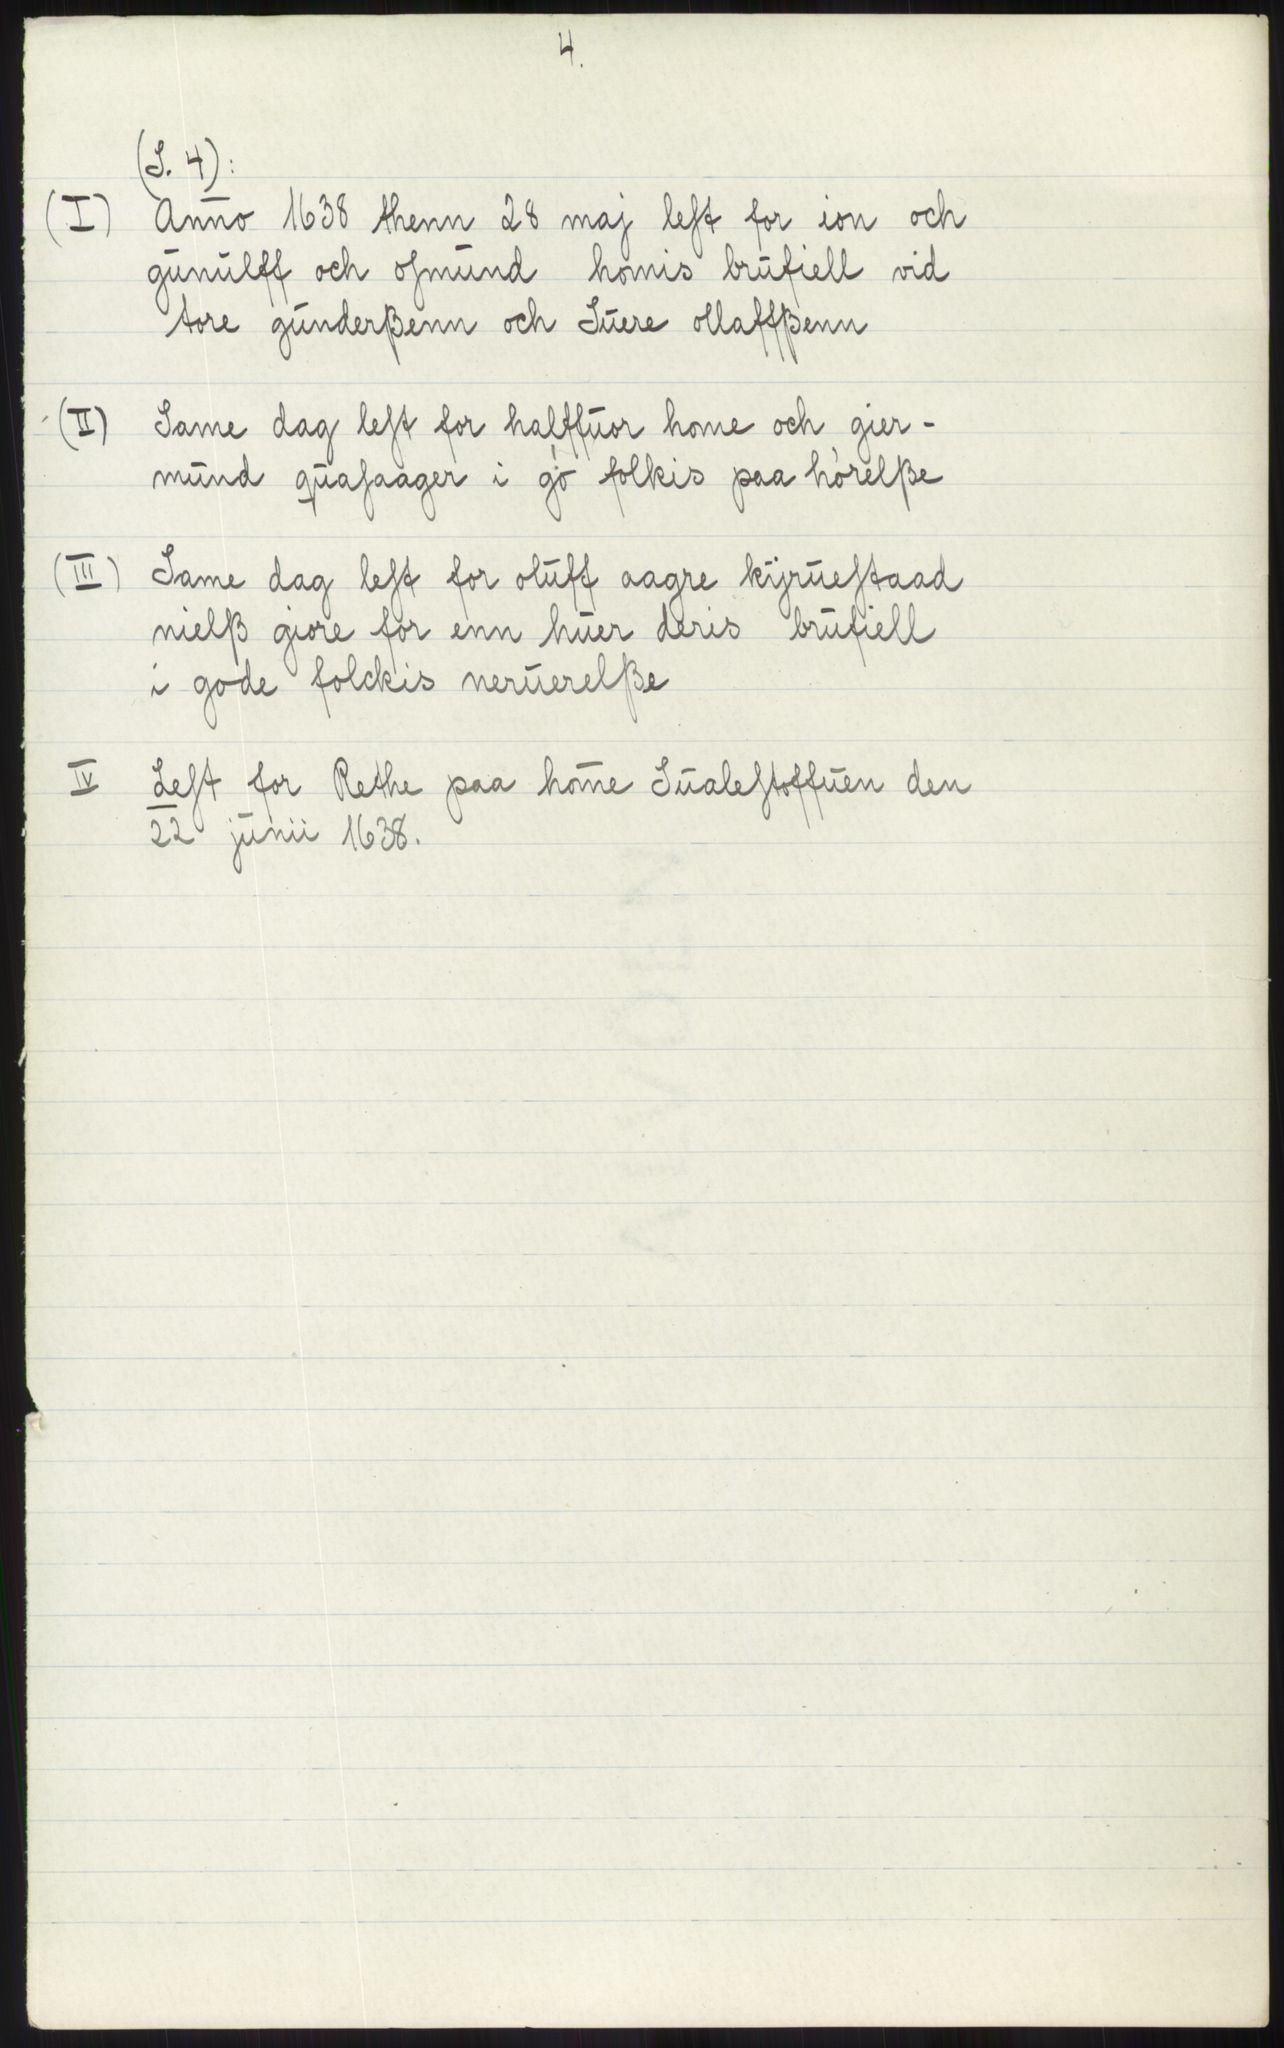 4.
(S. 4):
(I) Anno 1638 thenn 28 maj lest for ion och
gunulff och osmund homis brufiell vid
tore gunderßenn och Suere ollaffßenn
(II) Same dag lest for halffuor home och gier-
mund quasaager i gó folkis paa hórelße
(III) Same dag lest for oluff aagre kijruestaad
nielß giore for enn huer deris brufiell
i gode folckis neruerelße
IV Lest for Rethe paa home Sualestoffuen den
22 junii 1638.